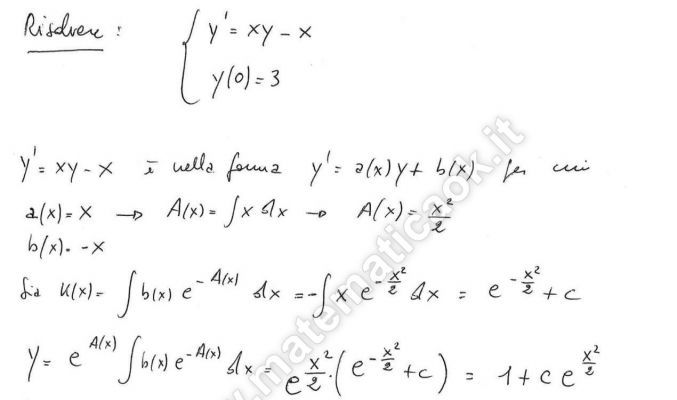 Risolvere : { y' = xy - x
y(0) = 3
y' = xy - x è nella forma y' = a(x)y + b(x) per cui
a(x) = x → A(x) = ∫ x dx → A(x) = x²/2
b(x) = -x
Sia K(x) = ∫ b(x) e^{-A(x)} dx = -∫ x e^{-x²/2} dx = e^{-x²/2} + c
y = e^{A(x)} ∫ b(x) e^{-A(x)} dx = e^{x²/2} · (e^{-x²/2} + c) = 1 + c e^{x²/2}
www.matematicaok.it